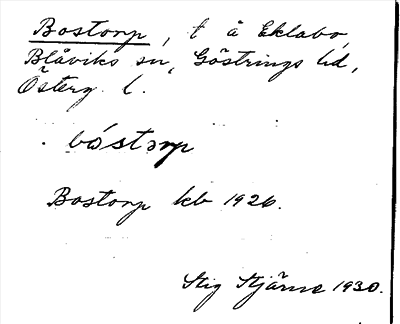 Bostorp, t å Eklabo,
Blåviks sn, Göstrings hd,
Österg. l.
bóstərp
Bostorp kb 1926.
Stig Stjärne 1930.